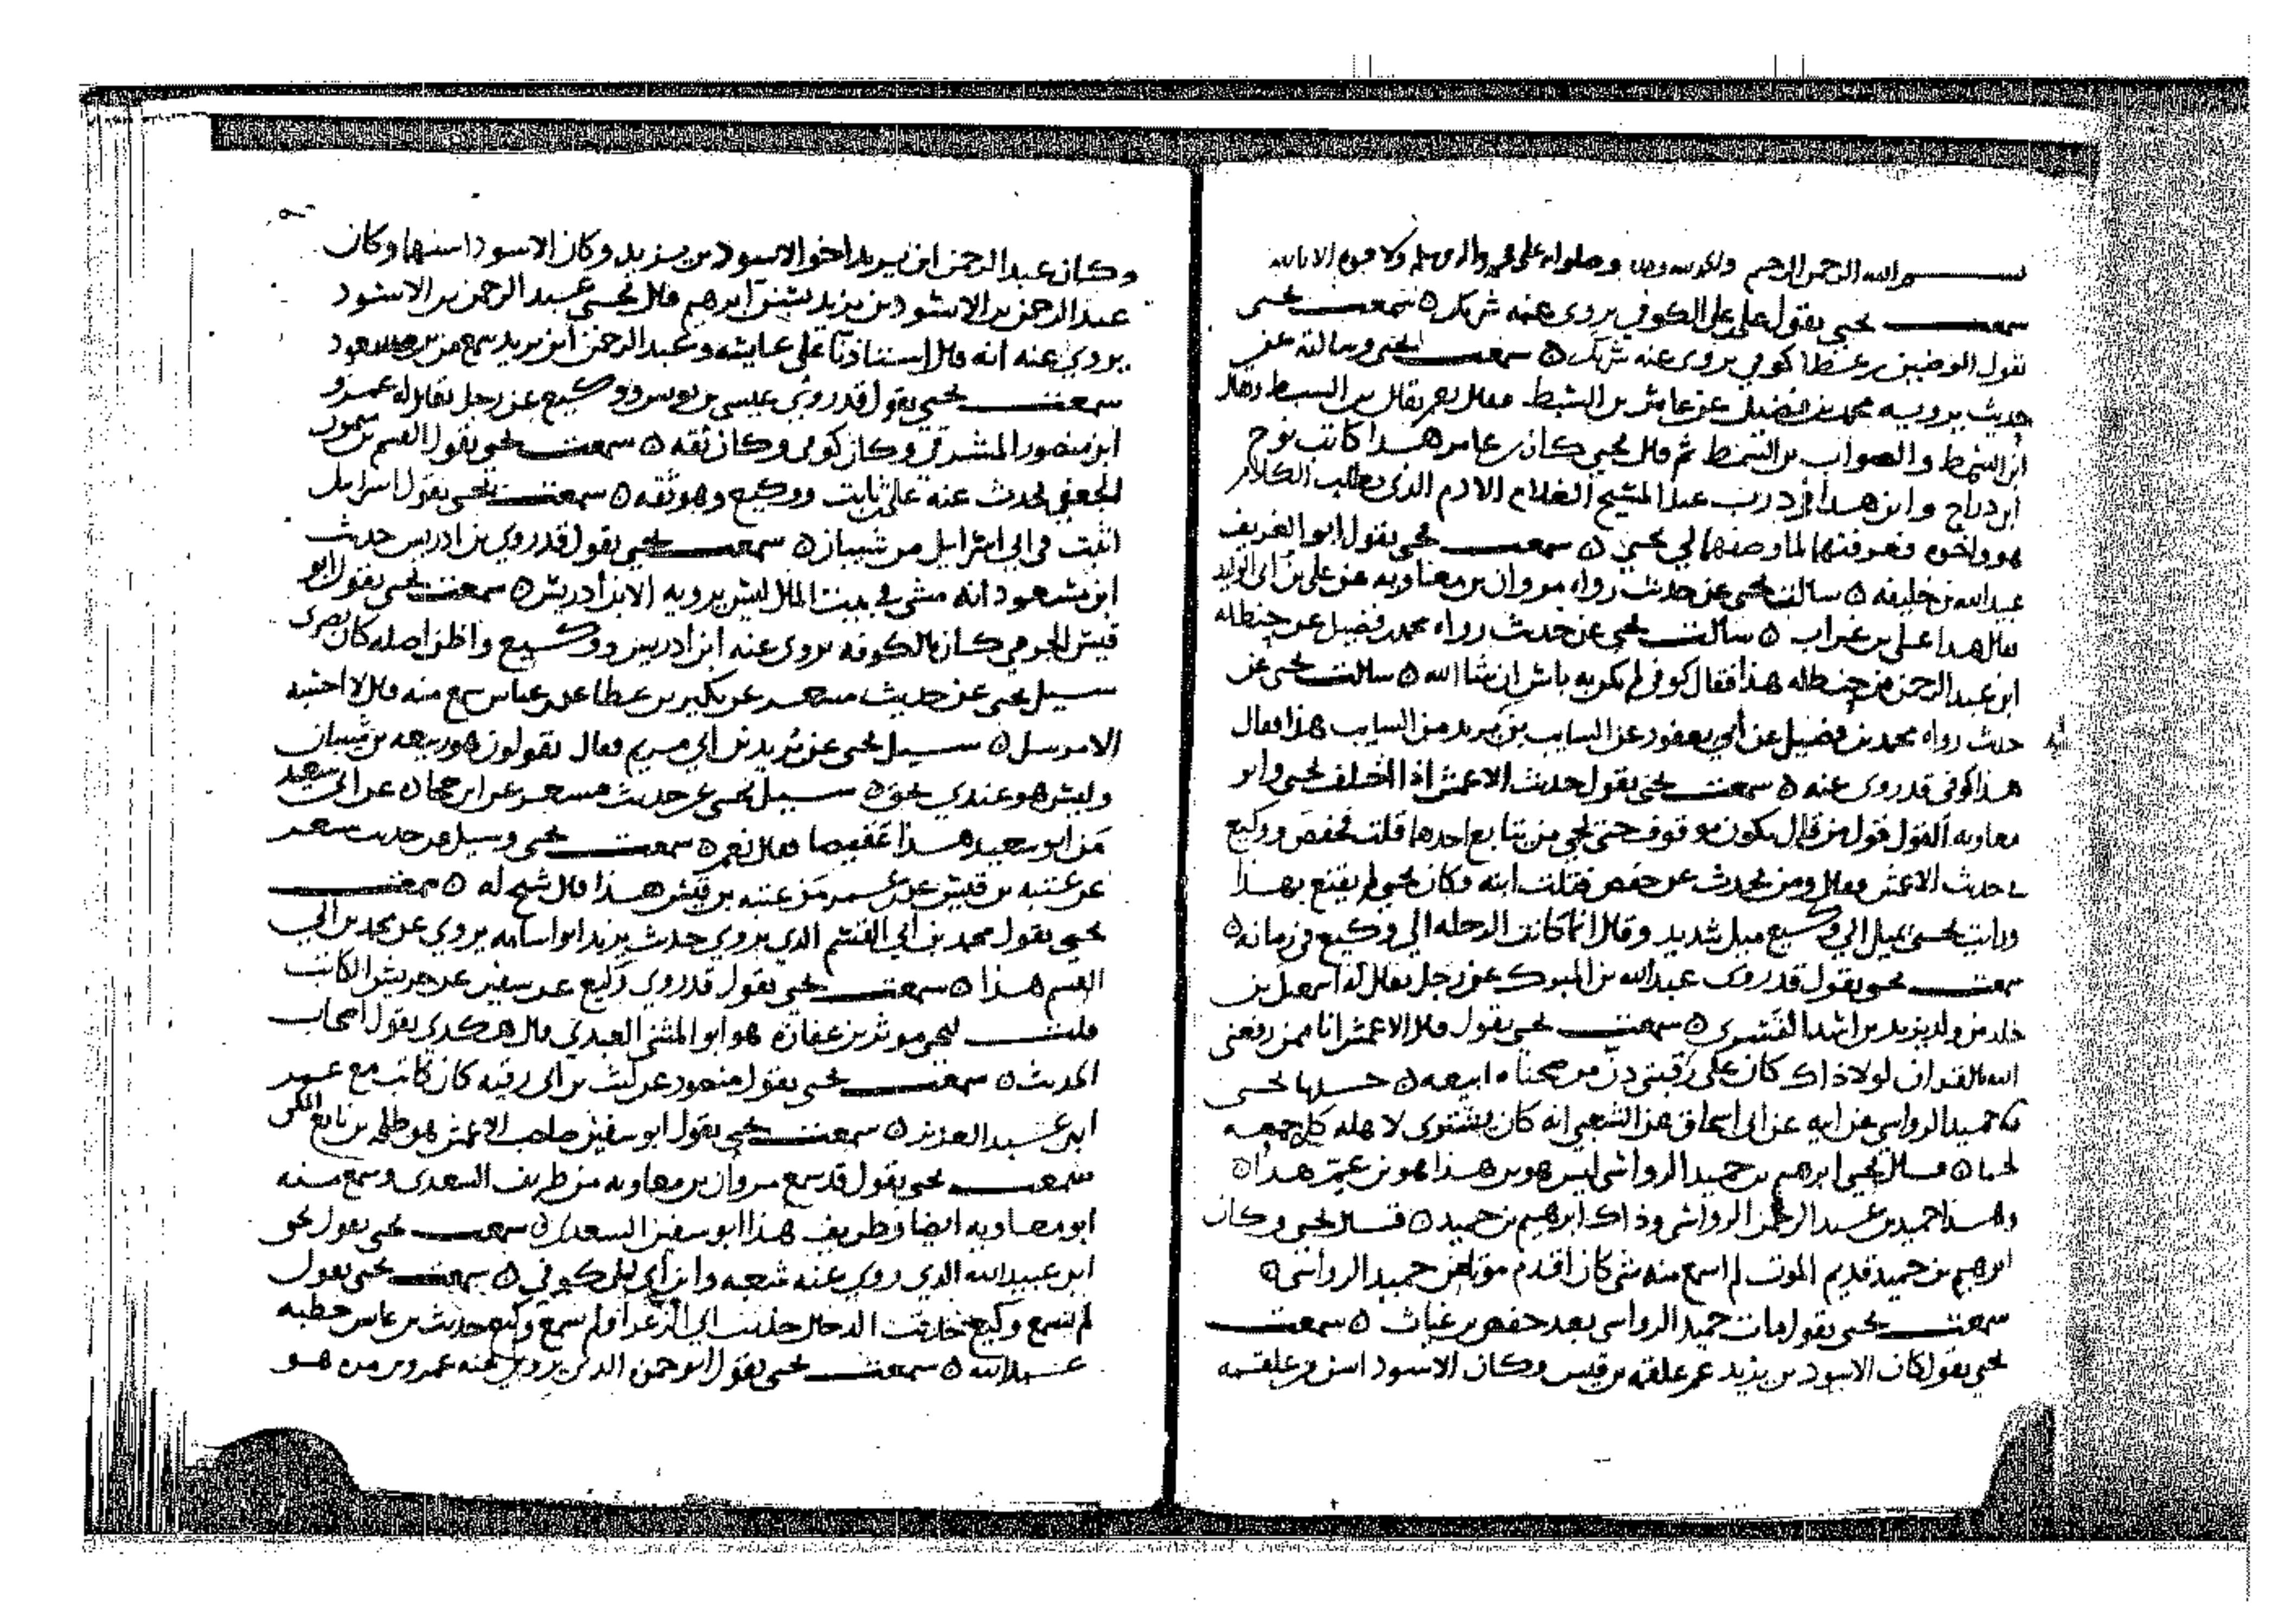 بسم الله الرحمن الرحيم ولا قوة الا بالله
سمعت يحيى يقول علي بن علي الكوفي يروي عنه شريك ٥ سمعت يحيى
يقول الوضين بن عطا كوفي يروي عنه شريك ٥ سمعت يحيى وسالته عن
حديث يرويه محمد بن فضيل عن عامر بن السبط فقال يحيى يقال بن السبط ويقال
ابن السمط والصواب بن السمط ثم قال يحيى كان عامر هذا كاتب نوح
ابن دراج وابن هذا في درب عبد المسيح الغلام الادم الذي يطلب الكلام
هو واخوه فعرفتها لما وصفها لي يحيى ٥ سمعت يحيى يقول ابو الغريف
عبيد الله بن خليفه ٥ سالت يحيى عن حديث رواه مروان بن معاويه عن علي بن ابي الوليد
قال هذا علي بن غراب ٥ سالت يحيى عن حديث رواه محمد بن فضيل عن حنظله
ابن عبد الرحمن من حنظله هذا فقال كوفي لم يكن به باس ان شا الله ٥ سالت يحيى عن
حديث رواه محمد بن فضيل عن ابي يعفور عن السايب بن يزيد من السايب هذا فقال
هذا كوفي قد روى عنه ٥ سمعت يحيى يقول حديث الاعمش اذا اختلف يحيى وابو
معاويه القول قول من قال يكون موقوف حتى يجي من يتابع احدهما قلت فحفص ووكيع
في حديث الاعمش فقال ومن يحدث عن حفص فقلت ابنه وكان يحيى لم يقنع بهذا
ورايت يحيى يميل الى وكيع ميل شديد وقال انما كانت الرحله الى وكيع في زمانه ٥
سمعت يحيى يقول قد روى عبد الله بن المبرك عن رجل يقال له اسمعيل بن
خلد من ولد يزيد بن اسد القسري ٥ سمعت يحيى يقول قال الاعمش انا ممن رفعني
الله بالقران لولا ذاك كان على رقبتي دن من صحناه ابيعه ٥ حدثنا يحيى
نا حميد الرواسي عن ابيه عن ابي اسحاق عن الشعبي انه كان يشتري لاهله كل جمعه
لحما ٥ قال يحيى ابراهيم بن حميد الرواسي ليس هو بن هذا هو بن عم هذا ٥
وهذا حميد بن عبد الرحمن الرواسي وذاك ابراهيم بن حميد ٥ قال يحيى وكان
ابرهيم بن حميد قديم الموت لم اسمع منه شي كان اقدم موتا من حميد الرواسي ٥
سمعت يحيى يقول مات حميد الرواسي بعد حفص بن غياث ٥ سمعت
يحيى يقول كان الاسود بن يزيد عم علقمه بن قيس وكان الاسود اسن من علقمه
وكان عبد الرحمن ابن يزيد اخو الاسود بن يزيد وكان الاسود اسنها وكان
عبد الرحمن بن الاسود بن يزيد ابرهيم قال يحيى عبد الرحمن بن الاسود
يروي عنه انه قال استاذنا على عايشه وعبد الرحمن ابن يزيد سمع من بن مسعود
سمعت يحيى يقول قد روى عيسى بن يونس ووكيع عن رجل يقال له عمرو
ابن منصور المشرقي وكان كوفي وكان ثقه ٥ سمعت يحيى يقول القسم بن
الجعفي يحدث عنه علي بن ثابت ووكيع وهو ثقه ٥ سمعت يحيى يقول اسرايل
اثبت في ابي اسرايل من شيبان ٥ سمعت يحيى يقول قد روى بن ادريس حديث
ابن مسعود انه مشى في بيت المال ليس يرويه الا بن ادريس ٥ سمعت يحيى يقول ابو
قيس الجرمي كان بالكوفه يروي عنه ابن ادريس ووكيع واظن اصله كان بصري
سيل يحيى عن حديث مسعر عن بكير بن عطا عن بن عباس سمع منه قال لا احسبه
الا مرسل ٥ سيل يحيى عن يزيد بن ابي مريم فقال يقولون هو ربيعه بن شيبان
وليس هو عندي بحق ٥ سيل يحيى عن حديث مسعر عن ابن حجاده عن ابي سعيد
من ابو سعيد هذا عقيصا فقال نعم ٥ سمعت يحيى وسيل عن حديث مسعر
عن عتبه بن قيس عن عمر من عتبه بن قيس هذا قال شيخ له ٥ سمعت
يحيى يقول محمد بن ابي القسم الذي يروي حديث يزيد ابو اسامه يروي عن محمد بن ابي
القسم هذا ٥ سمعت يحيى يقول قد روى وكيع عن سفين عن حريش الكاتب
قلت ليحيى موثر بن عفازه هو ابو المثنى العبدي قال هكذى يقول اصحاب
الحديث ٥ سمعت يحيى يقول منصور عن ليث بن ابي رقيه كان كاتب مع عمر
ابن عبد العزيز ٥ سمعت يحيى يقول ابو سفين صاحب الاعمش هو طلحه بن نافع المكي
سمعت يحيى يقول قد سمع مروان بن معاويه من طريف السعدي وسمع منه
ابو معاويه ايضا وطريف هذا ابو سفين السعدي ٥ سمعت يحيى يقول يحيى
ابو عبيد الله الذي روى عنه شعبه وابن ابي ليلى كوفي ٥ سمعت يحيى يقول
لم يسمع وكيع حديث الدجال حديث ابي الزعرا ولم يسمع وكيع حديث بن عباس خطبه
عبد الله ٥ سمعت يحيى يقول ابو حمزه الذي يروي عنه عمرو بن مره هو